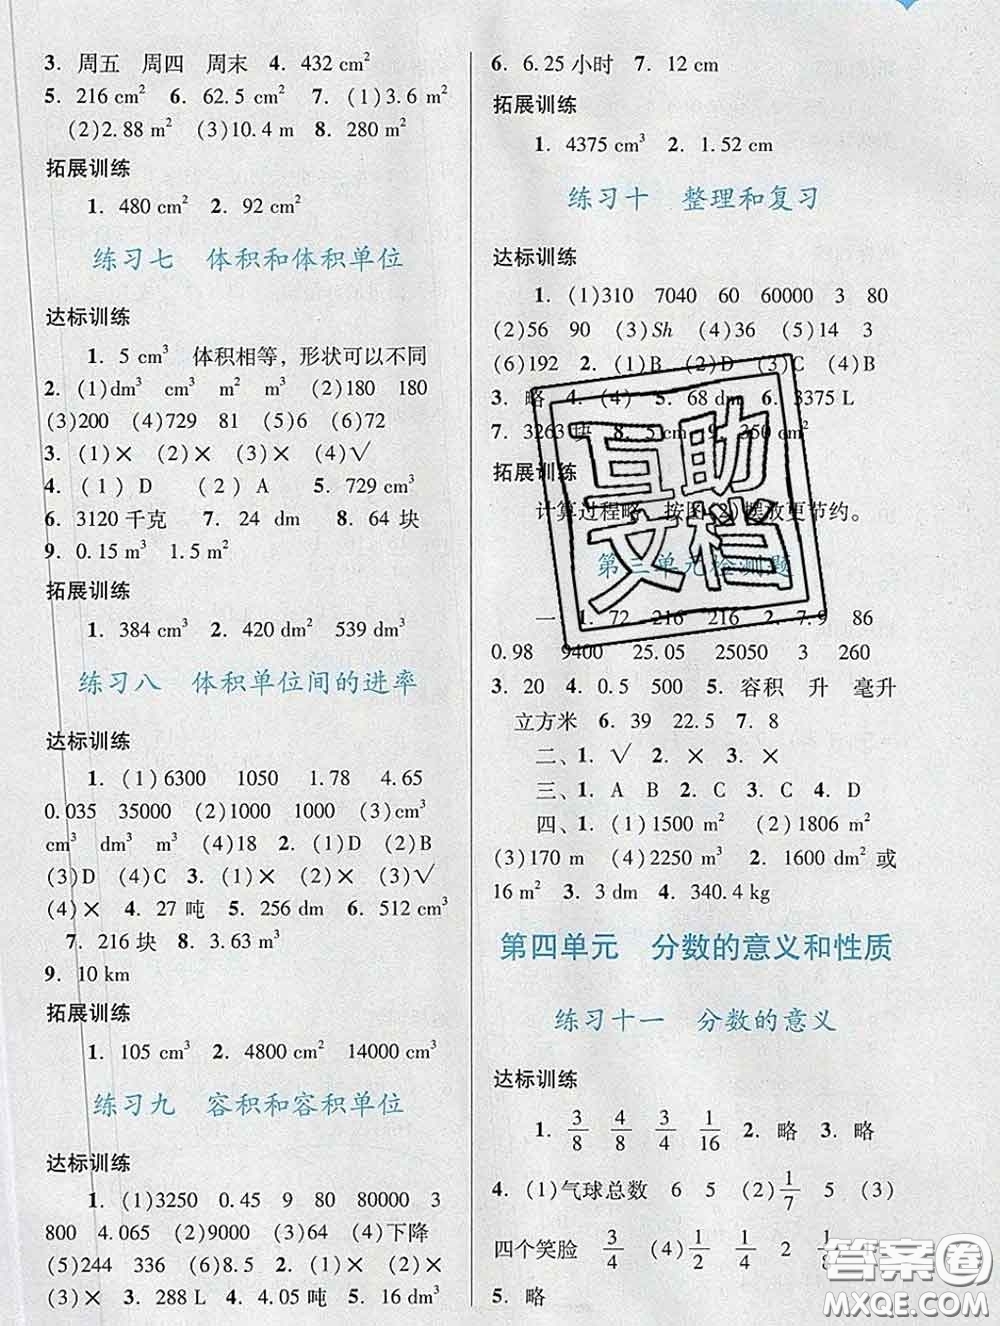 3. 周五 周四 周末 4. 432 cm²
5. 216 cm² 6. 62.5 cm² 7. (1)3.6 m²
(2)2.88 m² (3)10.4 m 8. 280 m²
拓展训练
1. 480 cm² 2. 92 cm²
练习七 体积和体积单位
达标训练
1. 5 cm³ 体积相等，形状可以不同
2. (1)dm³ cm³ m² m³ (2)180 180
(3)200 (4)729 81 (5)6 (6)72
3. (1)× (2)× (3)× (4)√
4. (1) D (2) A 5. 729 cm³
6. 3120 千克 7. 24 dm 8. 64 块
9. 0.15 m³ 1.5 m²
拓展训练
1. 384 cm³ 2. 420 dm² 539 dm³
练习八 体积单位间的进率
达标训练
1. (1)6300 1050 1.78 4.65
0.035 35000 (2)1000 1000 (3)cm³
cm³ dm³ m³ (4)18 2. (1)D (2)B
(3)D (4)C 3. (1)× (2)× (3)√
(4)× 4. 27 吨 5. 256 dm 6. 512 cm³
7. 216 块 8. 3.63 m³
9. 10 km
拓展训练
1. 105 cm³ 2. 4800 cm² 14000 cm³
练习九 容积和容积单位
达标训练
1. (1)3250 0.45 9 80 80000 3
800 4.065 (2)9000 (3)64 (4)下降
(5)244 336 (6)36 2. (1)× (2)×
(3)× 3. 288 L 4. 4.05 吨 5. 16 dm³
6. 6.25 小时 7. 12 cm
拓展训练
1. 4375 cm³ 2. 1.52 cm
练习十 整理和复习
达标训练
1. (1)310 7040 60 60000 3 80
(2)56 90 (3)Sh (4)36 (5)14 3
(6)192 2. (1)B (2)D (3)C (4)B
3. 略 4. (4) 5. 68 dm 6. 3375 L
7. 3263 块 8. 5 cm 9. 350 cm²
拓展训练
计算过程略 按图(2)摆放更节约。
第三单元检测题
一、1. 72 216 216 2. 7.9 86
0.98 9400 25.05 25050 3 260
3. 20 4. 0.5 500 5. 容积 升 毫升
立方米 6. 39 22.5 7. 8
二、1. √ 2. × 3. ×
三、1. A B 2. C 3. C 4. D
四、1. (1)1500 m² (2)1806 m²
(3)170 m (4)2250 m³ 2. 1600 dm² 或
16 m² 3. 3 dm 4. 340.4 kg
第四单元 分数的意义和性质
练习十一 分数的意义
达标训练
1. 3/8 4/8 3/4 1/16 2. 略 3. 略
4. (1)气球总数 6 5 (2) 1/7 5 (3)
四个笑脸 3/4 (4) 1/2 1/4 2 1/8
5. 略
互助
文档
答案圈
MXQE.COM